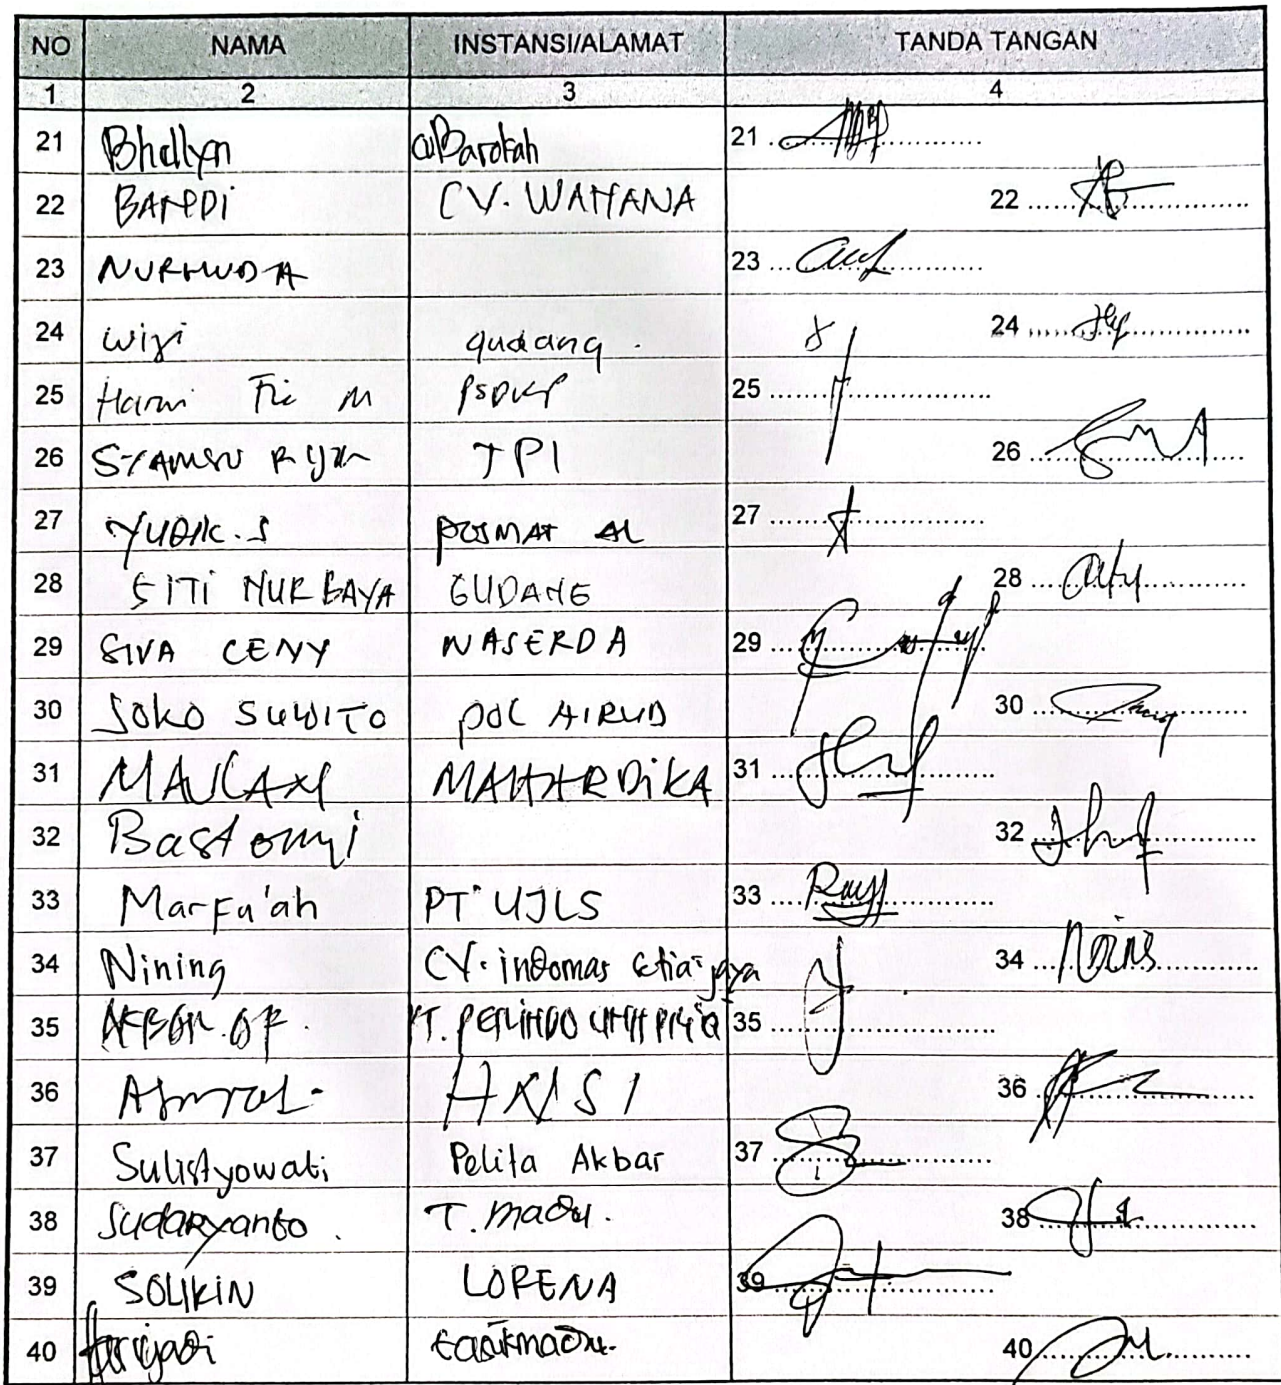 NO NAMA INSTANSI/ALAMAT TANDA TANGAN
1 2 3 4
21 Bhellyn CV Barokah 21
22 BANDI CV. WAHANA 22
23 NURHUDA 23
24 wiji gudang 24
25 Harni Tri M PSDKP 25
26 SYAMSU 26 TPI 26
27 YUDIK.S POSMAT AL 27
28 SITI NURBAYA GUDANG 28
29 SIVA CENY NASERDA 29
30 JOKO SUWITO POL AIRUD 30
31 MAULANA MAHARDIKA 31
32 Bastomi 32
33 Marfu'ah PT UJLS 33
34 Nining CV. indomas setia jaya 34
35 PT. 35
36 HNSI 36
37 Sulistyowati Pelita Akbar 37
38 Sudaryanto. T. madu. 38
39 SOLIKIN LORENA 39
40 Hariyadi tasikmadu. 40